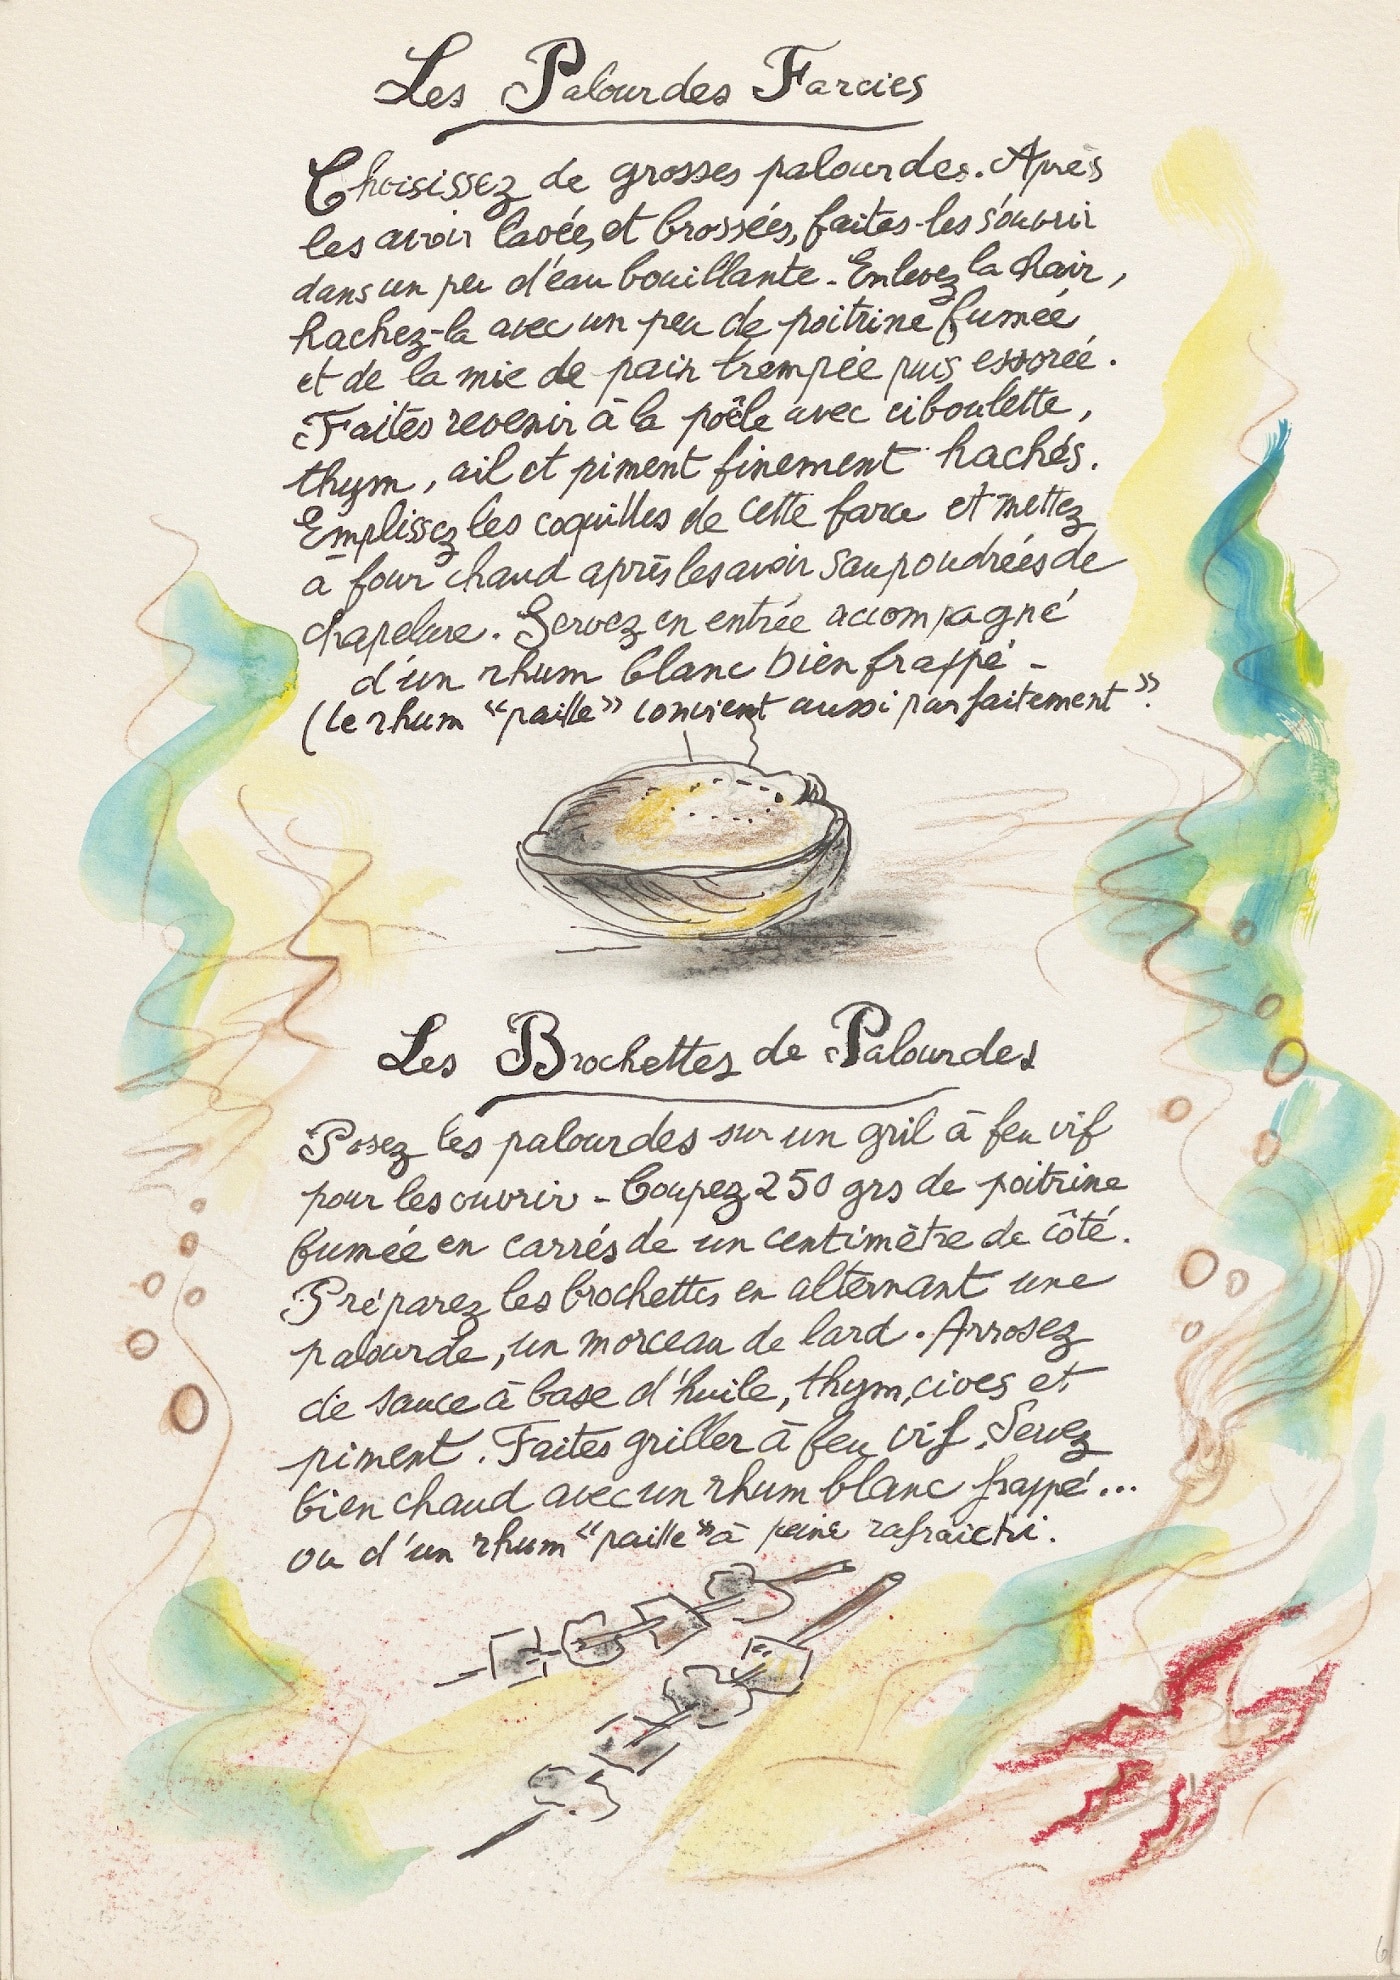 Les Palourdes Farcies
Choisissez de grosses palourdes. Après
les avoir lavées et brossées, faites-les s'ouvrir
dans un peu d'eau bouillante - Enlevez la chair,
hachez-la avec un peu de poitrine fumée
et de la mie de pain trempée puis essorée.
Faites revenir à la poêle avec ciboulette,
thym, ail et piment finement hachés.
Emplissez les coquilles de cette farce et mettez
à four chaud après les avoir saupoudrées de
chapelure. Servez en entrée accompagné
d'un rhum blanc bien frappé -
(le rhum "paille" convient aussi parfaitement".
Les Brochettes de Palourdes
Posez les palourdes sur un gril à feu vif
pour les ouvrir - Coupez 250 grs de poitrine
fumée en carrés de un centimètre de côté.
Préparez les brochettes en alternant une
palourde, un morceau de lard. Arrosez
de sauce à base d'huile, thym, cives et
piment. Faites griller à feu vif. Servez
bien chaud avec un rhum blanc frappé...
ou d'un rhum "paille" à peine rafraichi.
6